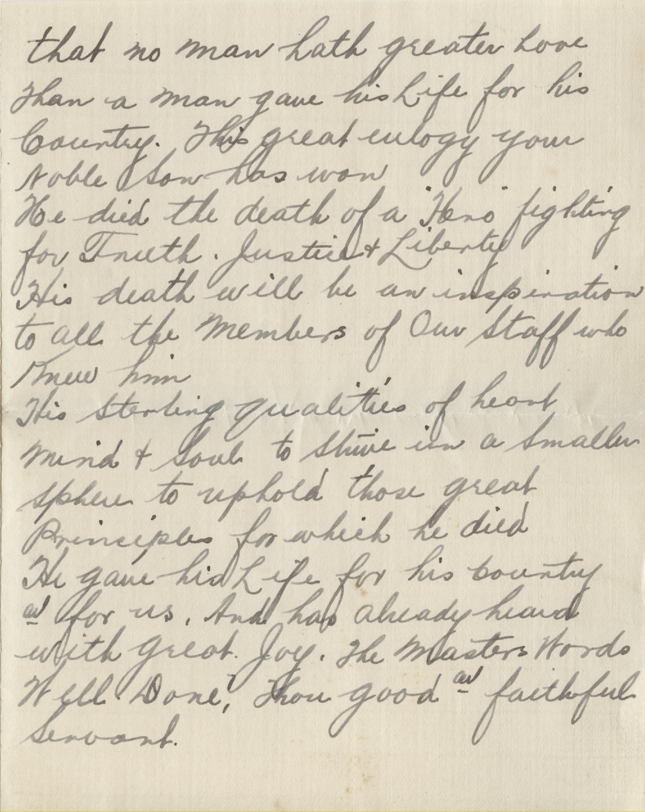 that no man hath greater Love
Than a man gave his Life for his
Country. This great eulogy your
Noble Son has won
He died the death of a "Hero" fighting
for Trueth. Justice & Liberty
His death will be an inspiration
to all the Members of Our Staff who
Knew him
His sterling qualities of heart
Mind & Soul to strive in a Smaller
sphere to uphold those great
Principles for which he died
He gave his Life for his country
and for us. And has already heard
with great Joy. The Masters Words
Well Done, Thou good and faithful
Servant.